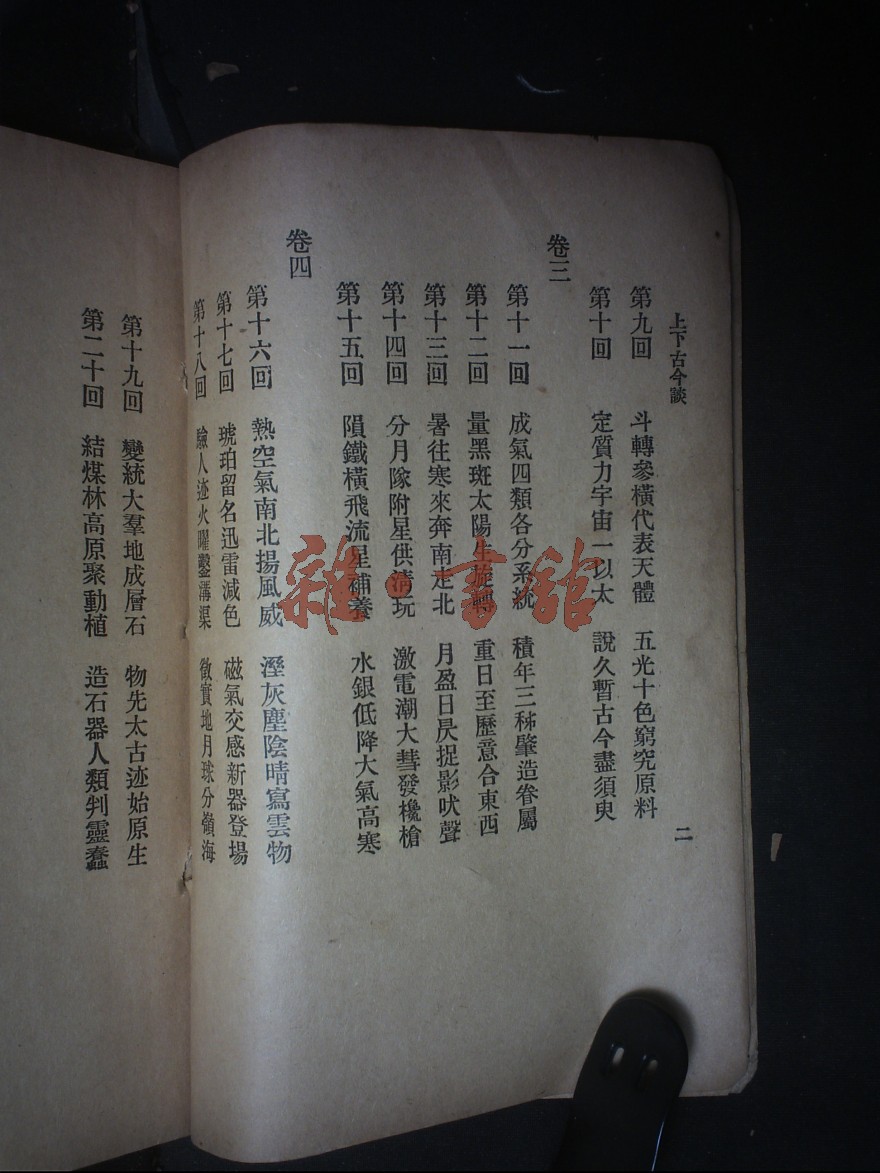 上下古今談
二
第九回 斗轉參橫代表天體 五光十色窮究原料
第十回 定質力宇宙一以太 說久暫古今盡須臾
卷三
第十一回 成氣四類各分系統 積年三秭肇造眷屬
第十二回 量黑斑太陽生旋轉 重日至歷意合東西
第十三回 暑往寒來奔南走北 月盈日昃捉影吠聲
第十四回 分月隊附星供清玩 激電潮大彗發欃槍
第十五回 隕鐵橫飛流星補養 水銀低降大氣高寒
卷四
第十六回 熱空氣南北揚風威 溼灰塵陰晴寫雲物
第十七回 琥珀留名迅雷減色 磁氣交感新器登場
第十八回 驗人迹火曜鑿溝渠 徵實地月球分嶺海
第十九回 變統大羣地成層石 物先太古迹始原生
第二十回 結煤林高原聚動植 造石器人類判靈蠢
雜·書館